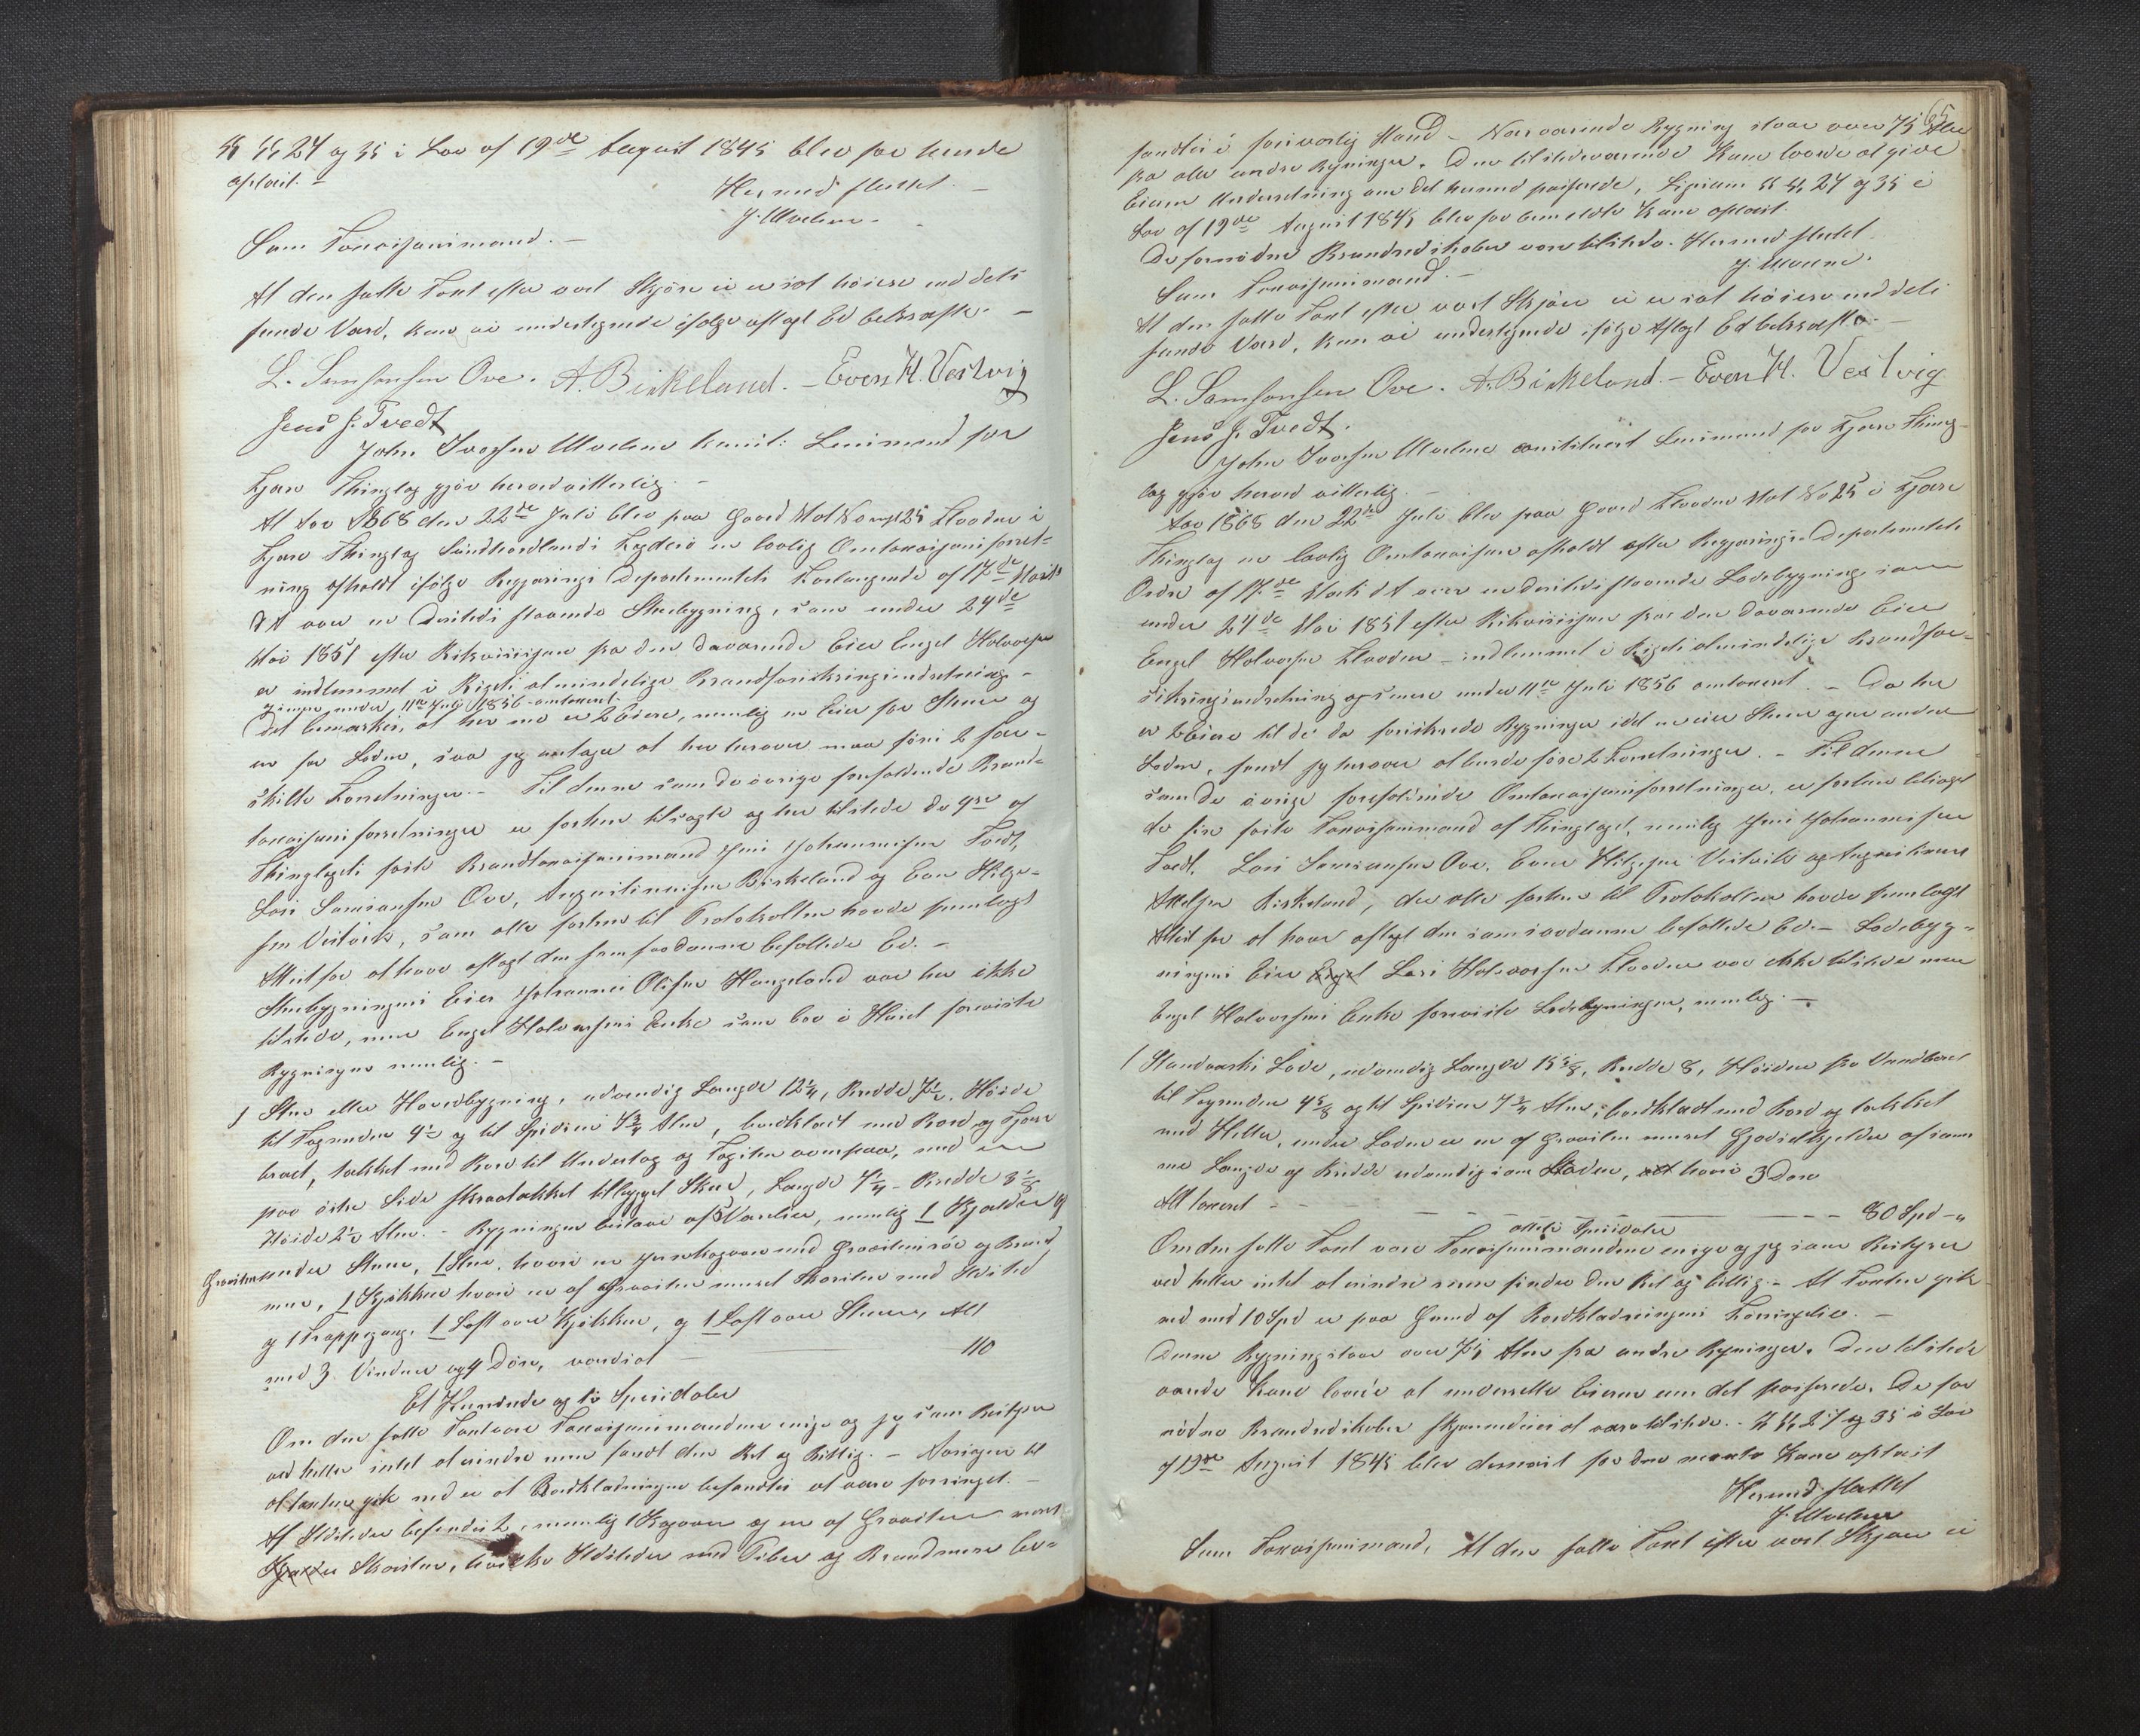 §§ 24 og 35 i Lov af 19de August 1845 blev for hende
oplæst. –
Hermed sluttet. –
J. Ulveken.
Som Taxasjonsmænd. –
At den satte Taxt efter vort Skjøn ei er sat høiere end dets
sande Værd, kan vi undertegnede ifølge aflagt Ed bekræfte. –
L. Samsonsen Ove. A. Birkeland. – Even H. Vestvig
Jens J. Tvedt
John Iversen const: Lensmand for
Thinglag gjør herved vitterlig. –
At Aar 1868 den 22de Juli blev paa Gaard Mat No 25 i
Thinglag Søndhordlands Fogderi en lovlig Omtaxasjonsforret-
ning afholdt ifølge Regjerings Departementets Forlangende af 17de Marts
d A over en dersteds staaende Stuebygning, som under 24de
Mai 1851 efter Rekvisisjon fra den daværende Eier Engel Halvorsen
er indlemmet i Rigets almindelige Brandforsikringsindretning –
og senere under 11te Juli 1856 omtaxeret.
Det bemærkes, at her nu er 2 Eiere, nemlig en Eier for Stuen og
en for Loden, saa jeg antager at her herover maa føres 2 sær-
skilte Forretninger. – Til denne som de øvrige forefaldende Brand-
taxasjonsforretninger er forhen tilsagte og her tilstede de 4re af
Thinglagets faste Brandtaxasjonsmænd Jens Johannesen Tvedt,
Lars Samsonsen Ove, Birkeland og Even Helge-
sen Vestvik, som alle forhen til Protokollen havde fremlagt
Attest for at have aflagt den som saadanne befallede Ed. –
Stuebygningens Eier Johannes Olsen Haugeland var her ikke
tilstede, men Engel Halvorsens Enke som bor i Huset foreviste
Bygningen nemlig. –
1 Stue eller Hovedbygning, udvendig Længde 12¼, Bredde 7½, Høide
til Tagenden 4½ og til Spidsen 7¾ Alen, bordklædt med Bord og
tækket med Bord til Undertag og Tagsten ovenpaa, med en
paa østre Side skraatækket tilbygget Skur, Længde 7¼ – Bredde 3⅛
Høide 2½ Alen. – Bygningen bestaar af 5 Værelser, nemlig 1 Kjælder af
Graasten under Stuen, 1 Stue, hvori en Jernkogeovn med Graastensrør og Brand
mur, 1 Kjøkken hvori en af Graasten muret Skorsten med
og 1 Trappegang, 1 Loft over Kjøkken, og 1 Loft over Stuen, Alt
med 3 Vinduer og 4 Døre, værdsat – 110
Et Hundrede og ti Speciedaler
Om den satte Taxt vare Taxasjonsmændene enige og jeg som Bestyrer
ved heller intet at erindre men fandt den Ret og Billig. – Aarsagen til
at Taxten gik ned er at Bordklædningen befandtes at være forringet. –
Af Ildsteder befindes 2, nemlig 1 Kogeovn og en af Graasten muret
Skorsten, hvilke Ildsteder med Piber og Brandmure be-
65
fandtes i forsvarlig Stand – Nærværende Bygning staar over 75 Alen
fra alle andre Bygninger. Den tilstedeværende Kone lovede at give
Eieren Underretning om det hermed passerede, Ligesom §§ 24 og 35 i
Lov af 19de August 1845 blev for bemeldte Kone oplæst.
De fornødne Brandredskaber vare tilstede. Hermed sluttet
J. Ulveken.
Som Taxasjonsmænd. –
At den satte Taxt efter vort Skjøn ei er sat høiere end dets
sande Værd, kan vi undertegnede ifølge Aflagt Ed bekræfte. –
L. Samsonsen Ove. A. Birkeland. – Even H. Vestvig
Jens J. Tvedt.
John Iversen constitueret Lensmand for Thing-
lag gjør herved vitterlig. –
Aar 1868 den 22de Juli blev paa Gaard Mat No 25 i
Thinglag en lovlig Omtaxasjon afholdt efter Regjerings Departementets
Ordre af 17de Marts d A over en dersteds staaende Lodebygning som
under 24de Mai 1851 efter Rekvisisjon fra den daværende Eier
Engel Halvorsen – indlemmet i Rigets almindelige Brandfor-
sikringsindretning og senere under 11te Juli 1856 omtaxeret. – Da her
er 2 Eiere til de da forsikrede Bygninger idet en eier Stuen og en anden
Loden, fandt jeg herover at burde føre 2 Forretninger. – Til denne
som de øvrige forefaldende Omtaxasjonsforretninger, er forhen tilsagt
de fire faste Taxasjonsmænd af Thinglaget, nemlig Jens Johannesen
Tvedt, Lars Samsonsen Ove, Even Helgesen Vestvik og
Birkeland, der alle forhen til Protokollen havde fremlagt
Attest for at have aflagt den som saadanne befallede Ed. – Lodebyg-
ningens Eier Engel Lars Halvorsen var ikke tilstede men
Engel Halvorsens Enke foreviste Lodebygningen, nemlig. –
1 Lode, udvendig Længde 15⅝, Bredde 8, Høiden fra
til Tagenden 4⅝ og til Spidsen 7¾ Alen, bordklædt med Bord og tækket
med Heller, under Loden er en af Graasten muret Gjødselkjelder af sam-
me Længde og Bredde udvendig som Loden, hvori 3 Døre
Alt taxeret – – – – – – 80 Spd – „
otteti Speciedaler
Om den satte Taxt vare Taxasjonsmændene enige og jeg som Bestyrer
ved heller intet at erindre men finder den Ret og billig. – At Taxten gik
ned med 10 Spd er paa Grund af Bordklædningens Forringelse. –
Denne Bygning staar over 75 Alen fra andre Bygninger. Den tilstede
værende Kone lovede at underrette Eieren om det passerede. De for
nødne Brandredskaber skjønnedes at være tilstede. – §§ 24 og 35 i Lov
af 19de August 1845 blev dernæst for den nævnte Kone oplæst
Hermed sluttet
J. Ulveken
Som Taxasjonsmænd, At den satte Taxt efter vort Skjøn ei